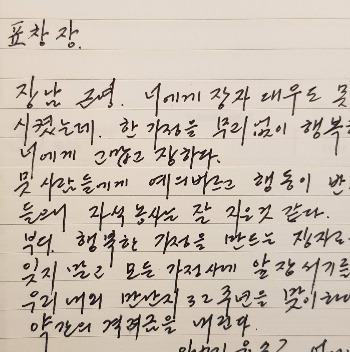 표창장.
장남 근영. 너에게 장자 대우도 못
시켰는데. 한 가정을 무리없이 행복
너에게 고맙고 장하다.
못 사람들에게 예의바르고 행동이 반
들으니 자식 농사는 잘 지은것 같다.
부디 행복한 가정을 만드는 장자로
잊지 말고 모든 가정사에 앞장서기를
우리 내외 만난지 32주년을 맞이하
약간의 격려금을 내린다.